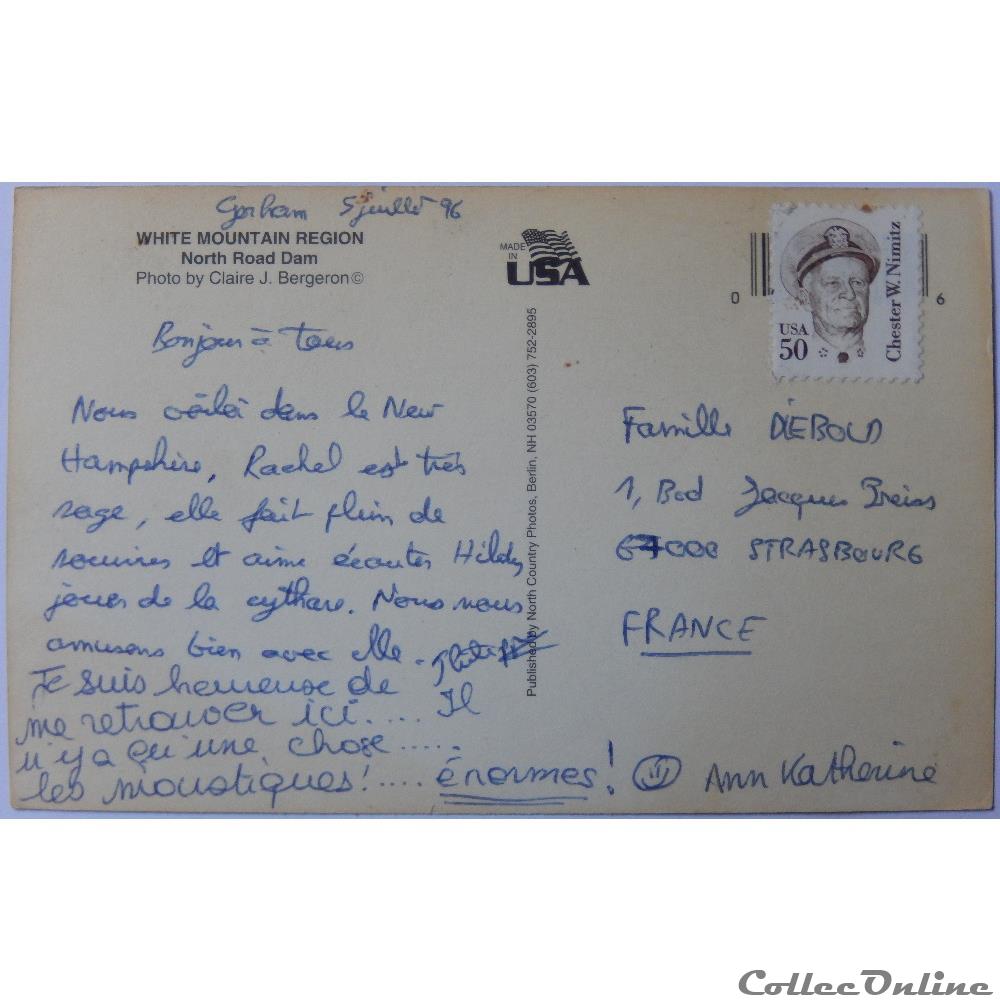 Gorham 5 juillet 96
WHITE MOUNTAIN REGION
North Road Dam
Photo by Claire J. Bergeron©
Bonjour à tous
Nous voilà dans le New
Hampshire, Rachel est très
sage, elle fait plein de
sourires et aime écouter Hildy
jouer de la cythare. Nous nous
amusons bien avec elle.
Je suis heureuse de
me retrouver ici.... Il
n'y a qu'une chose.....
les moustiques!.... énormes!
Ann Katherine
MADE
IN
USA
Published by North Country Photos, Berlin, NH 03570 (603) 752-2895
0 6
USA
50
Chester W. Nimitz
Famille DIEBOLD
1, Bod Jacques Preiss
67000 STRASBOURG
FRANCE
CollecOnline